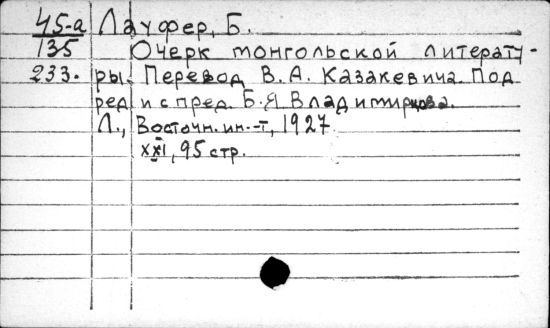 45-а Лауфер, Б.
135 Очерк монгольской литерату-
233. ры. Перевод В. А. Казакевича. Под
ред. и с пред. Б.Я. Владимирцова.
Л., Восточн. ин.-т, 1927.
XXI, 95 стр.